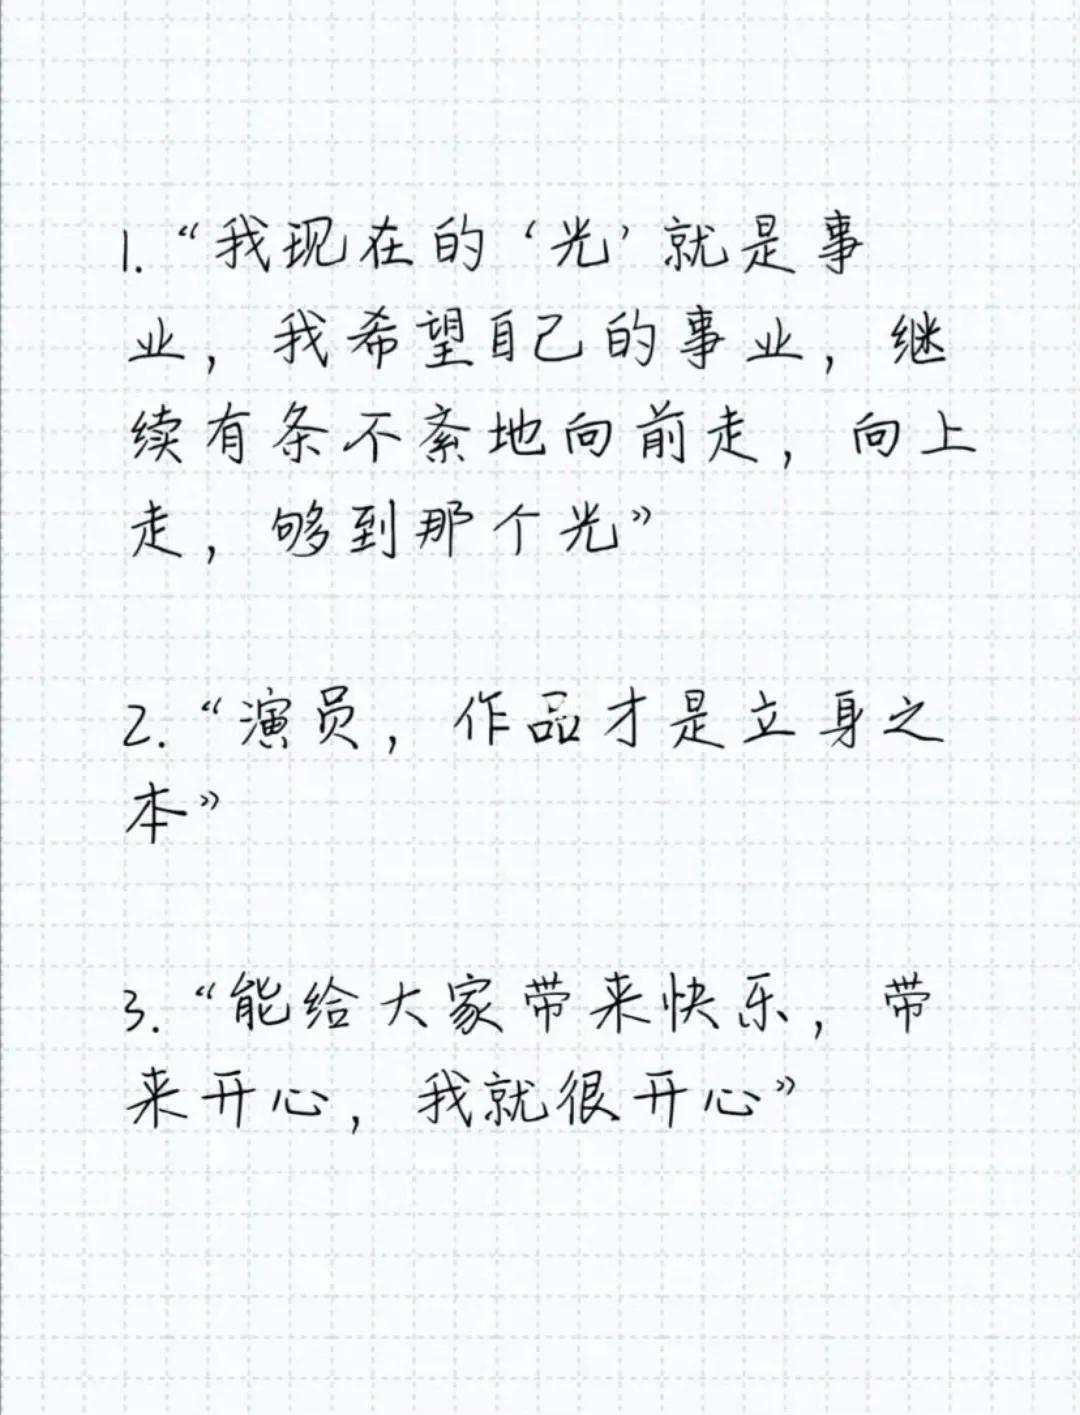 1.“我现在的‘光’就是事
业，我希望自己的事业，继
续有条不紊地向前走，向上
走，够到那个光”
2.“演员，作品才是立身之
本”
3.“能给大家带来快乐，带
来开心，我就很开心”